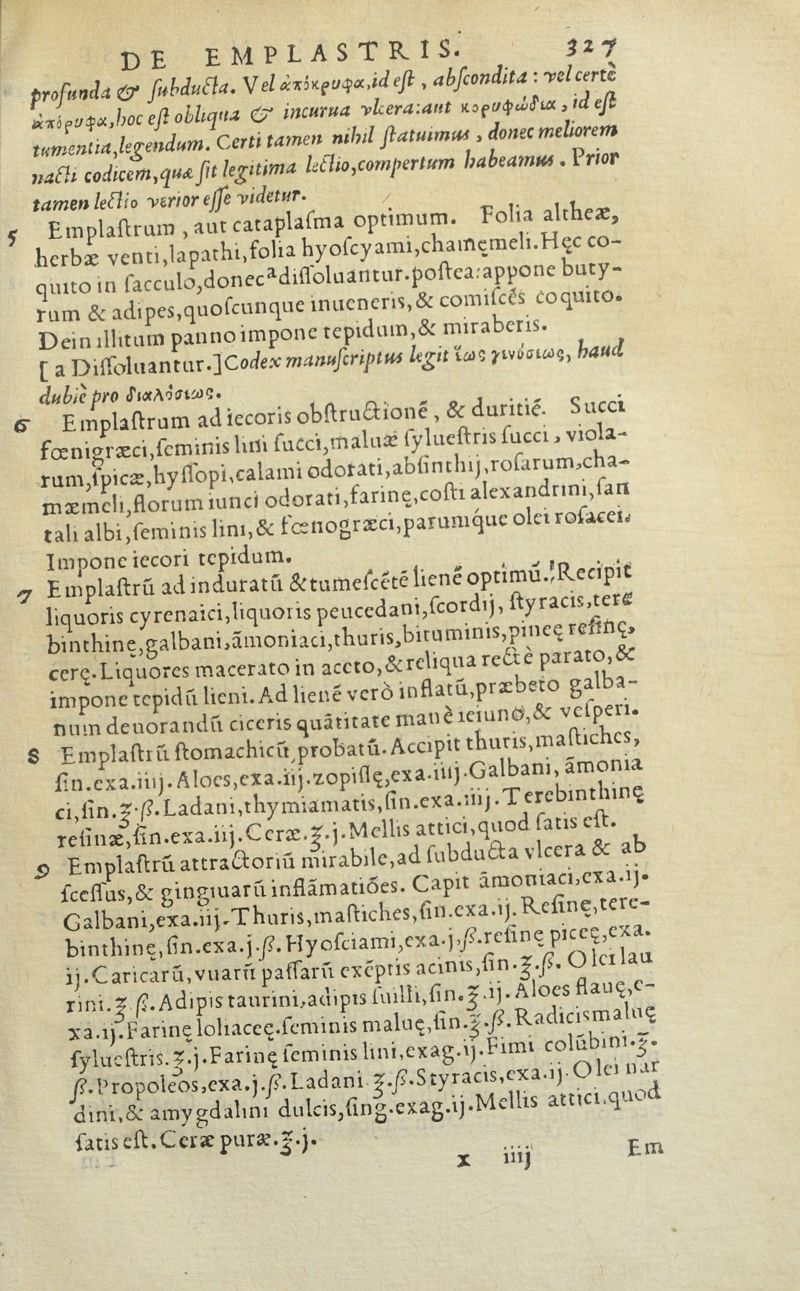 DE EMPLASTRIS. 327
profunda & ſubducta. Vel ἀπόκρυφα, id eſt, abſcondita: vel certè
ἀπόρυφα, hoc eſt obliqua & incurua vlcera: aut κορυφώδια, id eſt
tumentia, legendum. Certi tamen nihil ſtatuimus, donec meliorem
nacti codicem, quæ ſit legitima lectio, compertum habeamus. Prior
tamen lectio verior eſſe videtur.
5 Emplaſtrum, aut cataplaſma optimum. Folia altheæ,
herbæ venti, lapathi, folia hyoſcyami, chamęmeli. Hęc co-
quito in ſacculo, donec ᵃdiſſoluantur. poſtea: appone buty-
rum & adipes, quoſcunque inueneris, & comiſcēs coquito.
Dein illitum panno impone tepidum, & miraberis.
[a Diſſoluantur.] Codex manuſcriptus legit haud
dubiè pro διαλύσεως.
6 Emplaſtrum ad iecoris obſtructionē, & duritiē. Succi
fœnigræci, ſeminis lini ſucci, maluæ ſylueſtris ſucci, viola-
rum, ſpicæ, hyſſopi, calami odorati, abſinthij, roſarum, cha-
mæmeli, florum iunci odorati, farinę, coſti alexandrini, ſan
tali albi, ſeminis lini, & fœnogræci, parumque olei roſacei.
Impone iecori tepidum.
7 Emplaſtrū ad induratū & tumeſcētē lienē optimū. Recipit
liquoris cyrenaici, liquoris peucedani, ſcordij, ſtyracis, tere
binthinę, galbani, āmoniaci, thuris, bituminis, pineę reſinę,
cerę. Liquores macerato in aceto, & reliqua rectè parato, &
impone tepidū lieni. Ad lienē verò inflatū, præbeto galba-
num deuorandū ciceris quātitate manè ieiuno, & veſperi.
8 Emplaſtrū ſtomachicū, probatū. Accipit thuris, maſtiches,
ſin. exa. iiij. Aloes, exa. iij. zopiſſę, exa. iiij. Galbani, amonia
ci, ſin. ℥. ß. Ladani, thymiamatis, ſin. exa. iiij. Terebinthinę
reſinæ, ſin. exa. iij. Ceræ. ℥. j. Mellis attici, quod ſatis eſt.
9 Emplaſtrū attractoriū mirabile, ad ſubducta vlcera & ab
ſceſſus, & gingiuarū inflāmatiōes. Capit āmoniaci, exa. ij.
Galbani, exa. iij. Thuris, maſtiches, ſin. exa. ij. Reſinę, tere-
binthinę, ſin. exa. j. ß. Hyoſciami, exa. j. ß. reſinę piceę, exa.
ij. Caricarū, vuarū paſſarū exēptis acinis, ſin. ℥. ß. Olei lau
rini. ℥. ß. Adipis taurini, adipis ſuilli, ſin. ℥. ij. Aloes flauę, e-
xa. ij. Farinę loliaceę. ſeminis maluę, ſin. ℥. ß. Radicis maluę
ſylueſtris. ℥. j. Farinę ſeminis lini, exag. ij. Fimi colūbini. ℥.
ß. Propoleos, exa. j. ß. Ladani ℥. ß. Styracis, exa. ij. Olei nar
dini, & amygdalini dulcis, ſing. exag. ij. Mellis attici, quod
ſatis eſt. Ceræ puræ. ℥. j.
x iiij Em